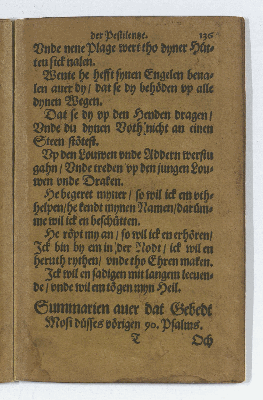 der Pestilentze. 136
Vnde neue Plage wert tho dyner Hüt-
ten sick nalen.
Wente he hefft synen Engelen beua-
len auer dy / dat se dy behöden vp alle
dynen Wegen.
Dat se dy vp den Henden dragen /
Vnde du dynen Voth nicht an einen
Steen stötest.
Vp den Louwen vnde Addern werstu
gahn / Vnde treden vp den jungen Lou-
wen vnde Draken.
He begeret myner / so wil ick em vth-
helpen / he kendt mynen Namen / darüm-
me wil ick en beschütten.
He röpt my an / so wil ick en erhören /
Ick bin by em in der Nodt / ick wil en
heruth rythen / vnde tho Ehren maken.
Ick wil en sadigen mit langem leuen-
de / vnde wil em tögen myn Heil.
Summarien auer dat Gebedt
Mosi düsses vörigen 90. Psalms.
T Och